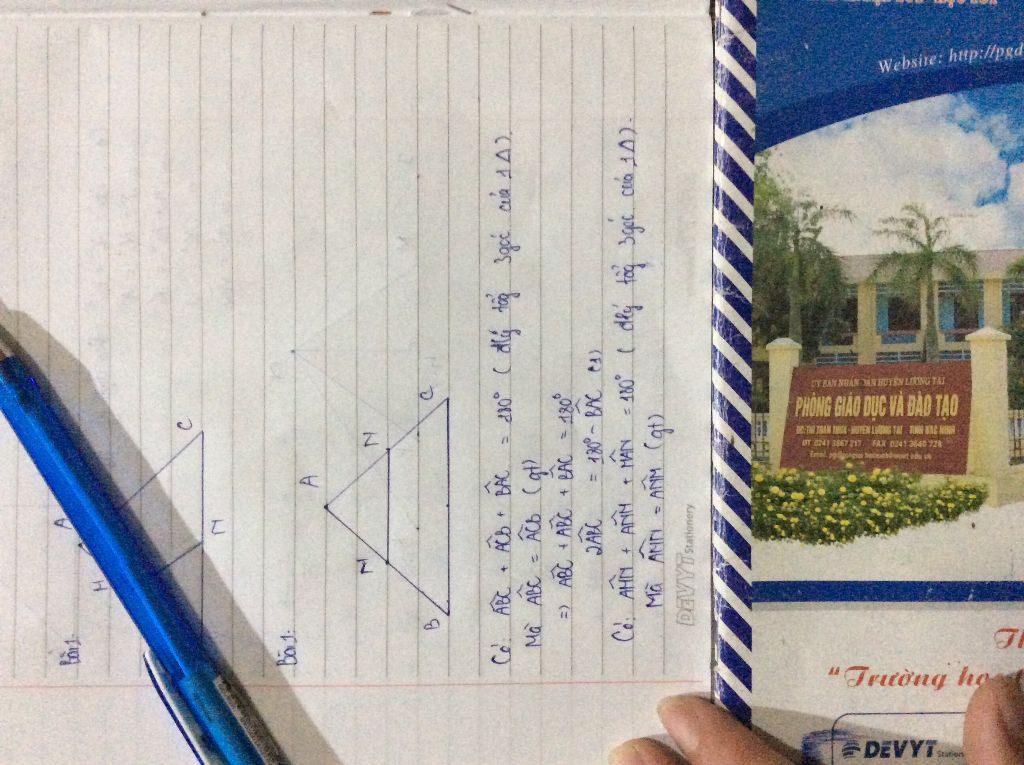 Bài 1:
A
M
C
N
Bài 1:
A
M
N
B
C
Có: ABC + ACB + BAC = 180° ( đlý tổg 3góc của 1Δ)
Mà ABC = ACB (gt)
=> ABC + ABC + BAC = 180°
2ABC = 180° - BAC (1)
Có: AMN + ANM + MAN = 180° ( đlý tổg 3góc của 1Δ).
Mà AMN = ANM (gt)
DEVYT Stationery
Website: http://pgd
ỦY BAN NHÂN DÂN HUYỆN LƯƠNG TÀI
PHÒNG GIÁO DỤC VÀ ĐÀO TẠO
ĐC: THỊ TRẤN THỨA - HUYỆN LƯƠNG TÀI - TỈNH BẮC NINH
ĐT 0241 3867 217 FAX 0241 3640 728
Email.
Th
“Trường họ
DEVYT Station